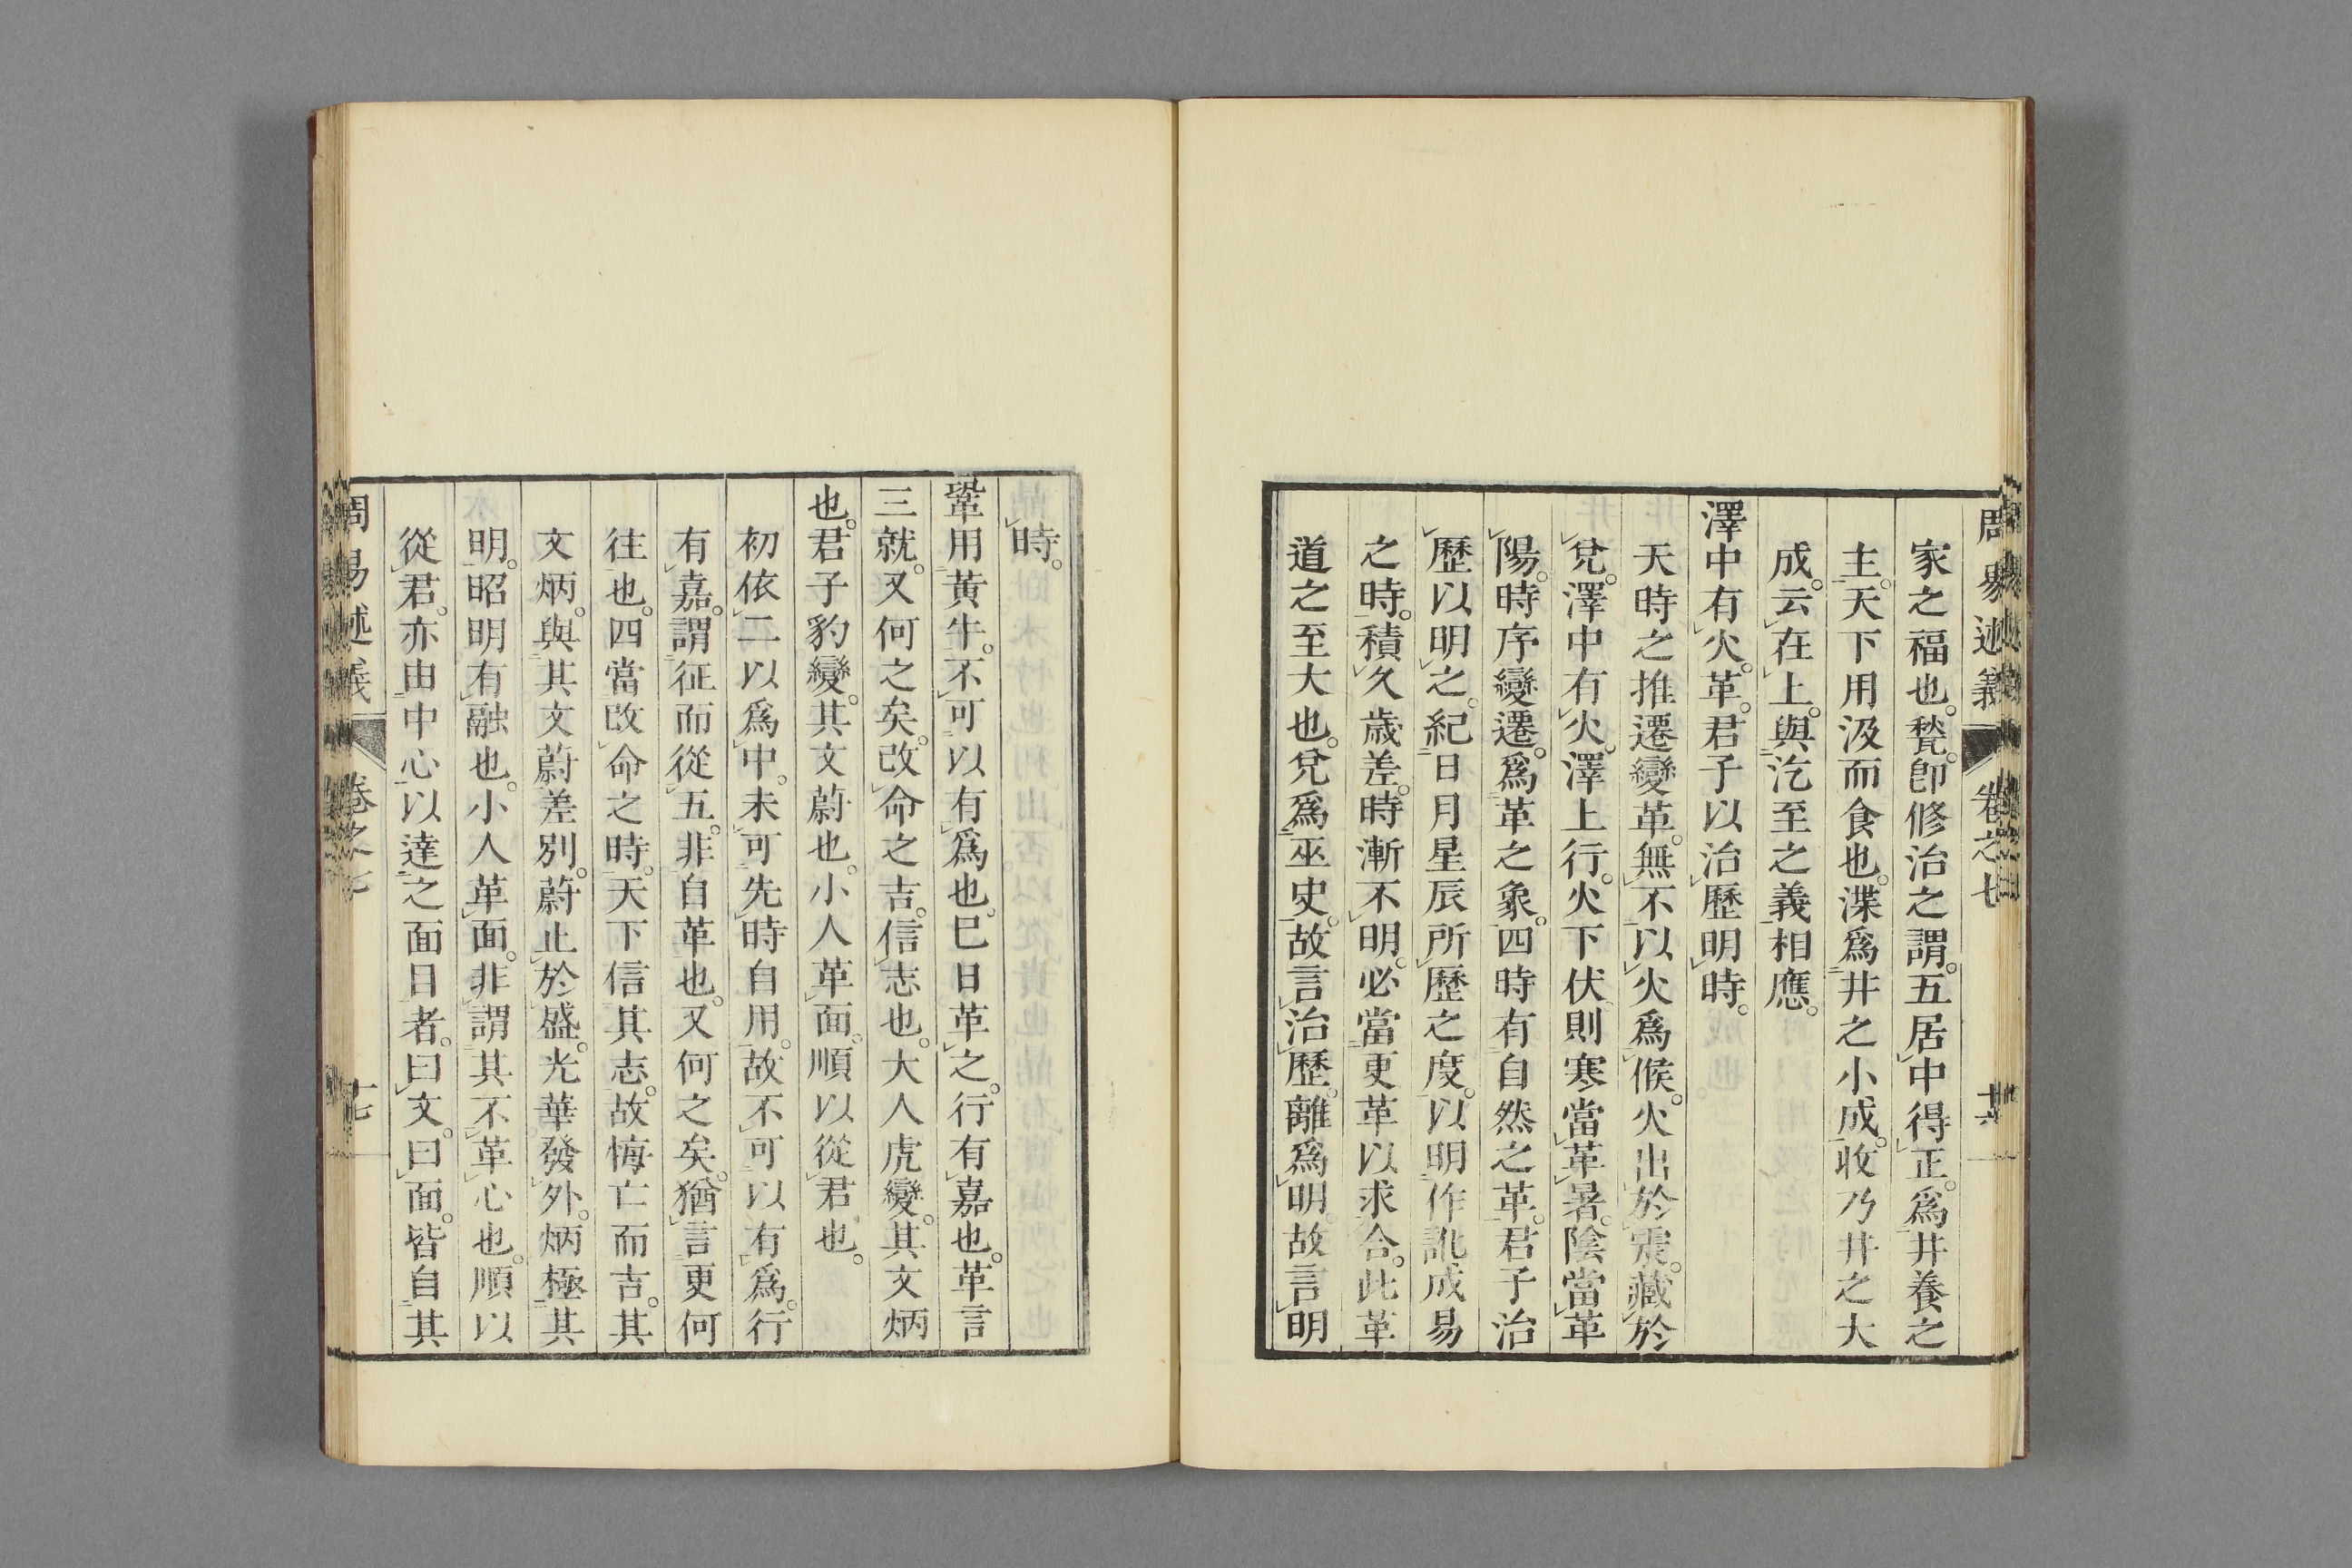 周易述義 卷之七 十六
家之福也。甃。卽修治之謂。五居中得正。爲井養之
主。天下用汲而食也。渫爲井之小成。收乃井之大
成。云在上。與汔至之義相應。
澤中有火。革。君子以治歷明時。
天時之推遷變革。無不以火爲候。火出於震。藏於
兌。澤中有火。澤上行。火下伏。則寒當革暑。陰當革
陽。時序變遷。爲革之象。四時有自然之革。君子治
歷以明之。紀日月星辰所歷之度。以明作訛成易
之時。積久歲差。時漸不明。必當更革以求合。此革
道之至大也。兌爲巫史。故言治歷。離爲明。故言明
時。
鞏用黃牛。不可以有爲也。巳日革之。行有嘉也。革言
三就。又何之矣。改命之吉。信志也。大人虎變。其文炳
也。君子豹變。其文蔚也。小人革面。順以從君也。
初依二以爲中。未可先時自用。故不可以有爲。行
有嘉。謂征而從五。非自革也。又何之矣。猶言更何
往也。四當改命之時。天下信其志。故悔亡而吉。其
文炳。與其文蔚差別。蔚止於盛。光華發外。炳極其
明。昭明有融也。小人革面。非謂其不革心也。順以
從君。亦由中心以達之面目者。曰文。曰面。皆自其
周易述義 卷之七 十七